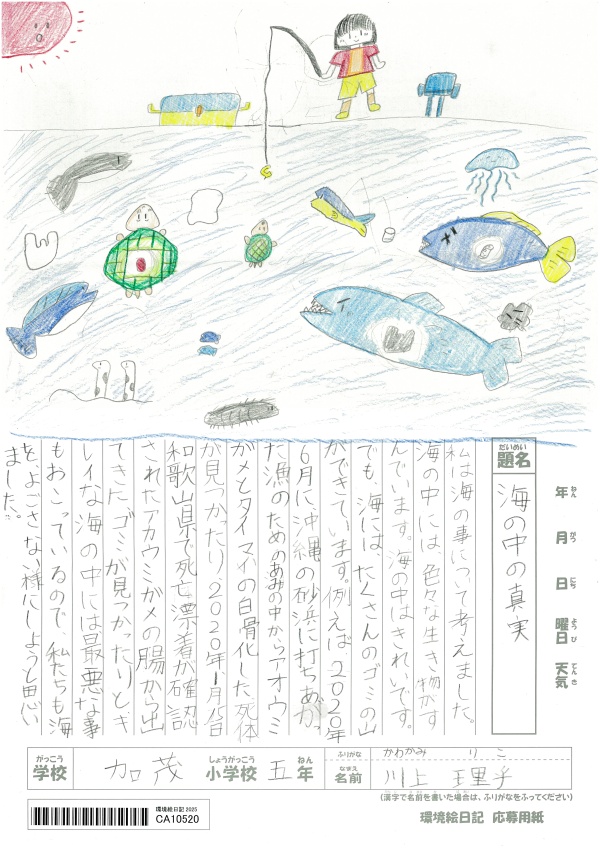 だいめい
題名
海の中の真実
年 ねん
月 がつ
日 にち
曜日 ようび
天気 てんき
私は海の事について考えました。
海の中には、色々な生き物がす
んでいます。海の中はきれいです。
でも、海には、たくさんのゴミの山
ができています。例えば、2020年
6月に、沖縄の砂浜に打ちあがっ
た漁のためのあみの中からアオウミ
ガメとタイマイの白骨化した死体
が見つかったり、2020年1月18日
和歌山県で死亡漂着が確認
されたアカウミガメの腸から出
てきたゴミが見つかったりとキ
レイな海の中には最悪な事
もおこっているので、私たちも海
をよごさない様にしようと思い
ました。
がっこう しょうがっこう ねん
学校 加茂 小学校 五 年
ふりがな かわかみ りこ
なまえ
名前 川上 理子
(漢字で名前を書いた場合は、ふりがなをふってください)
環境絵日記 2025
CA10520
環境絵日記 応募用紙